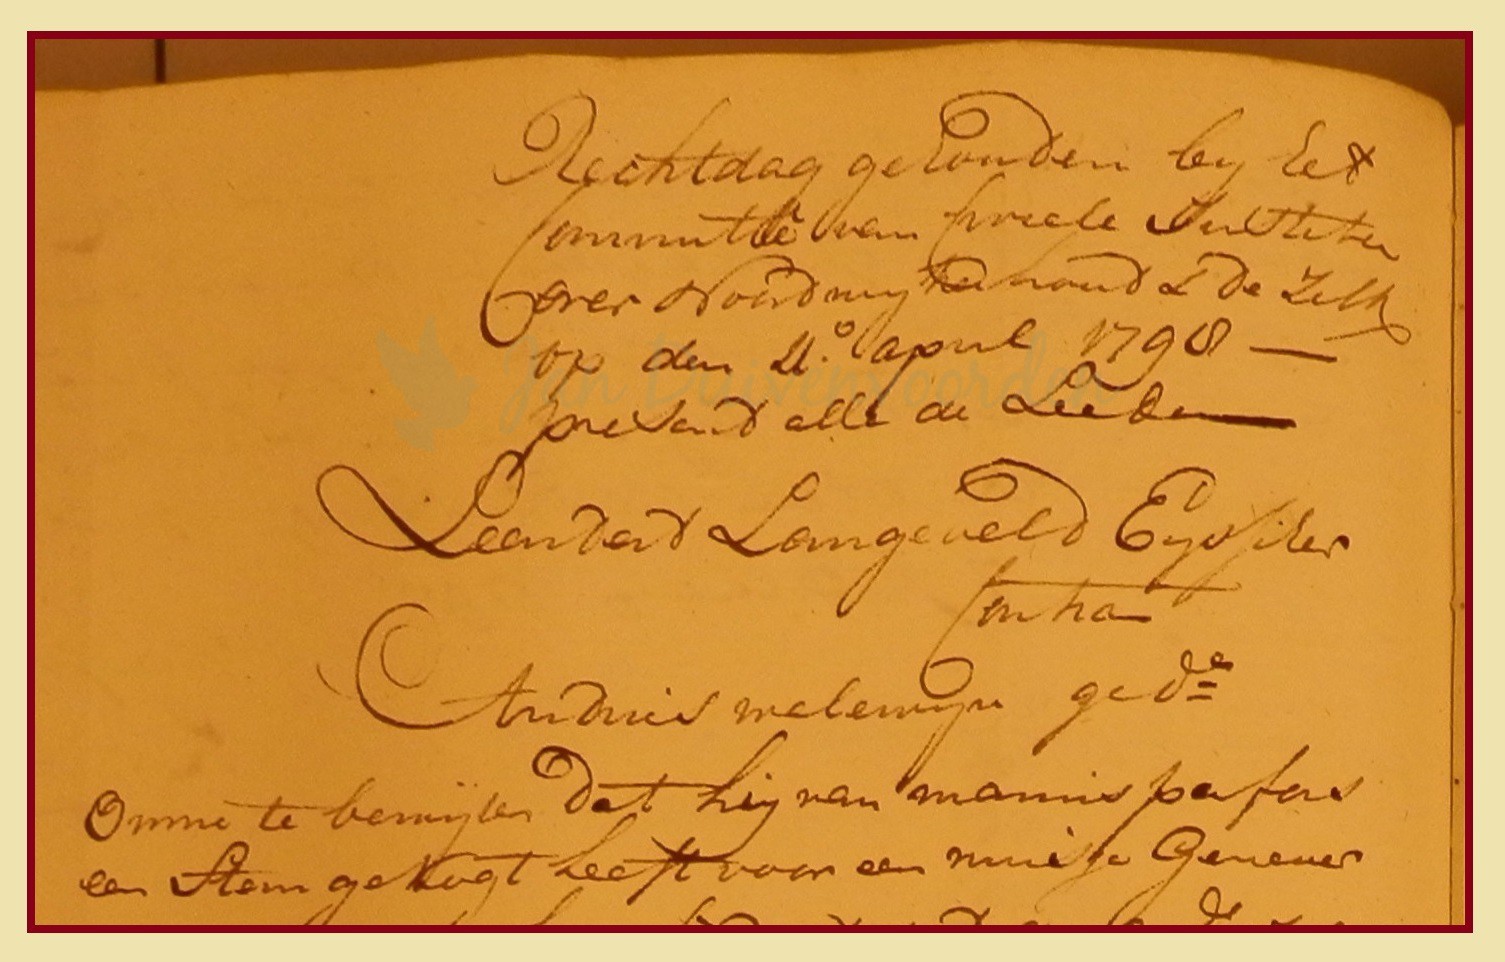 Rechtdag gehouden by het
Committé van Civiele Justitie
over Noordwykerhoud & de Zilk
op den 11.º april 1798 —
present alle de Leeden —
Leendert Langeveld Eysscher
Contra
Andries melewyn ged.e
Omme te bewijsen dat hij van mannis
een Stem gekogt heeft voor een mutsje Genever
Jan Duivenvoorden